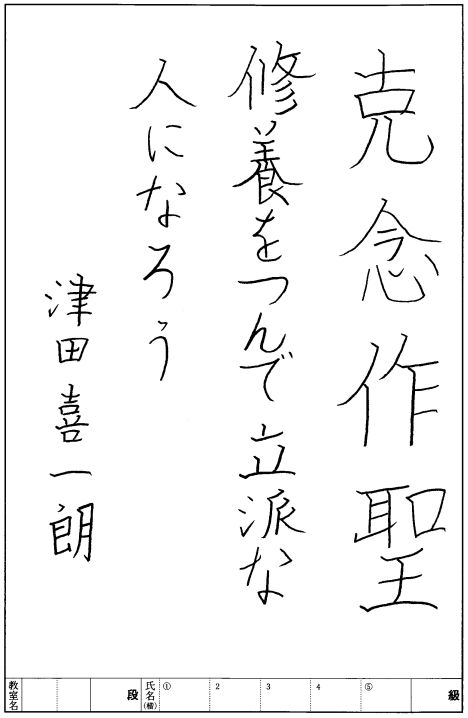 克念作聖
修養をつんで立派な
人になろう
津田喜一朗
教室名
段
氏名(楷)
① 2 3 4 ⑤
級